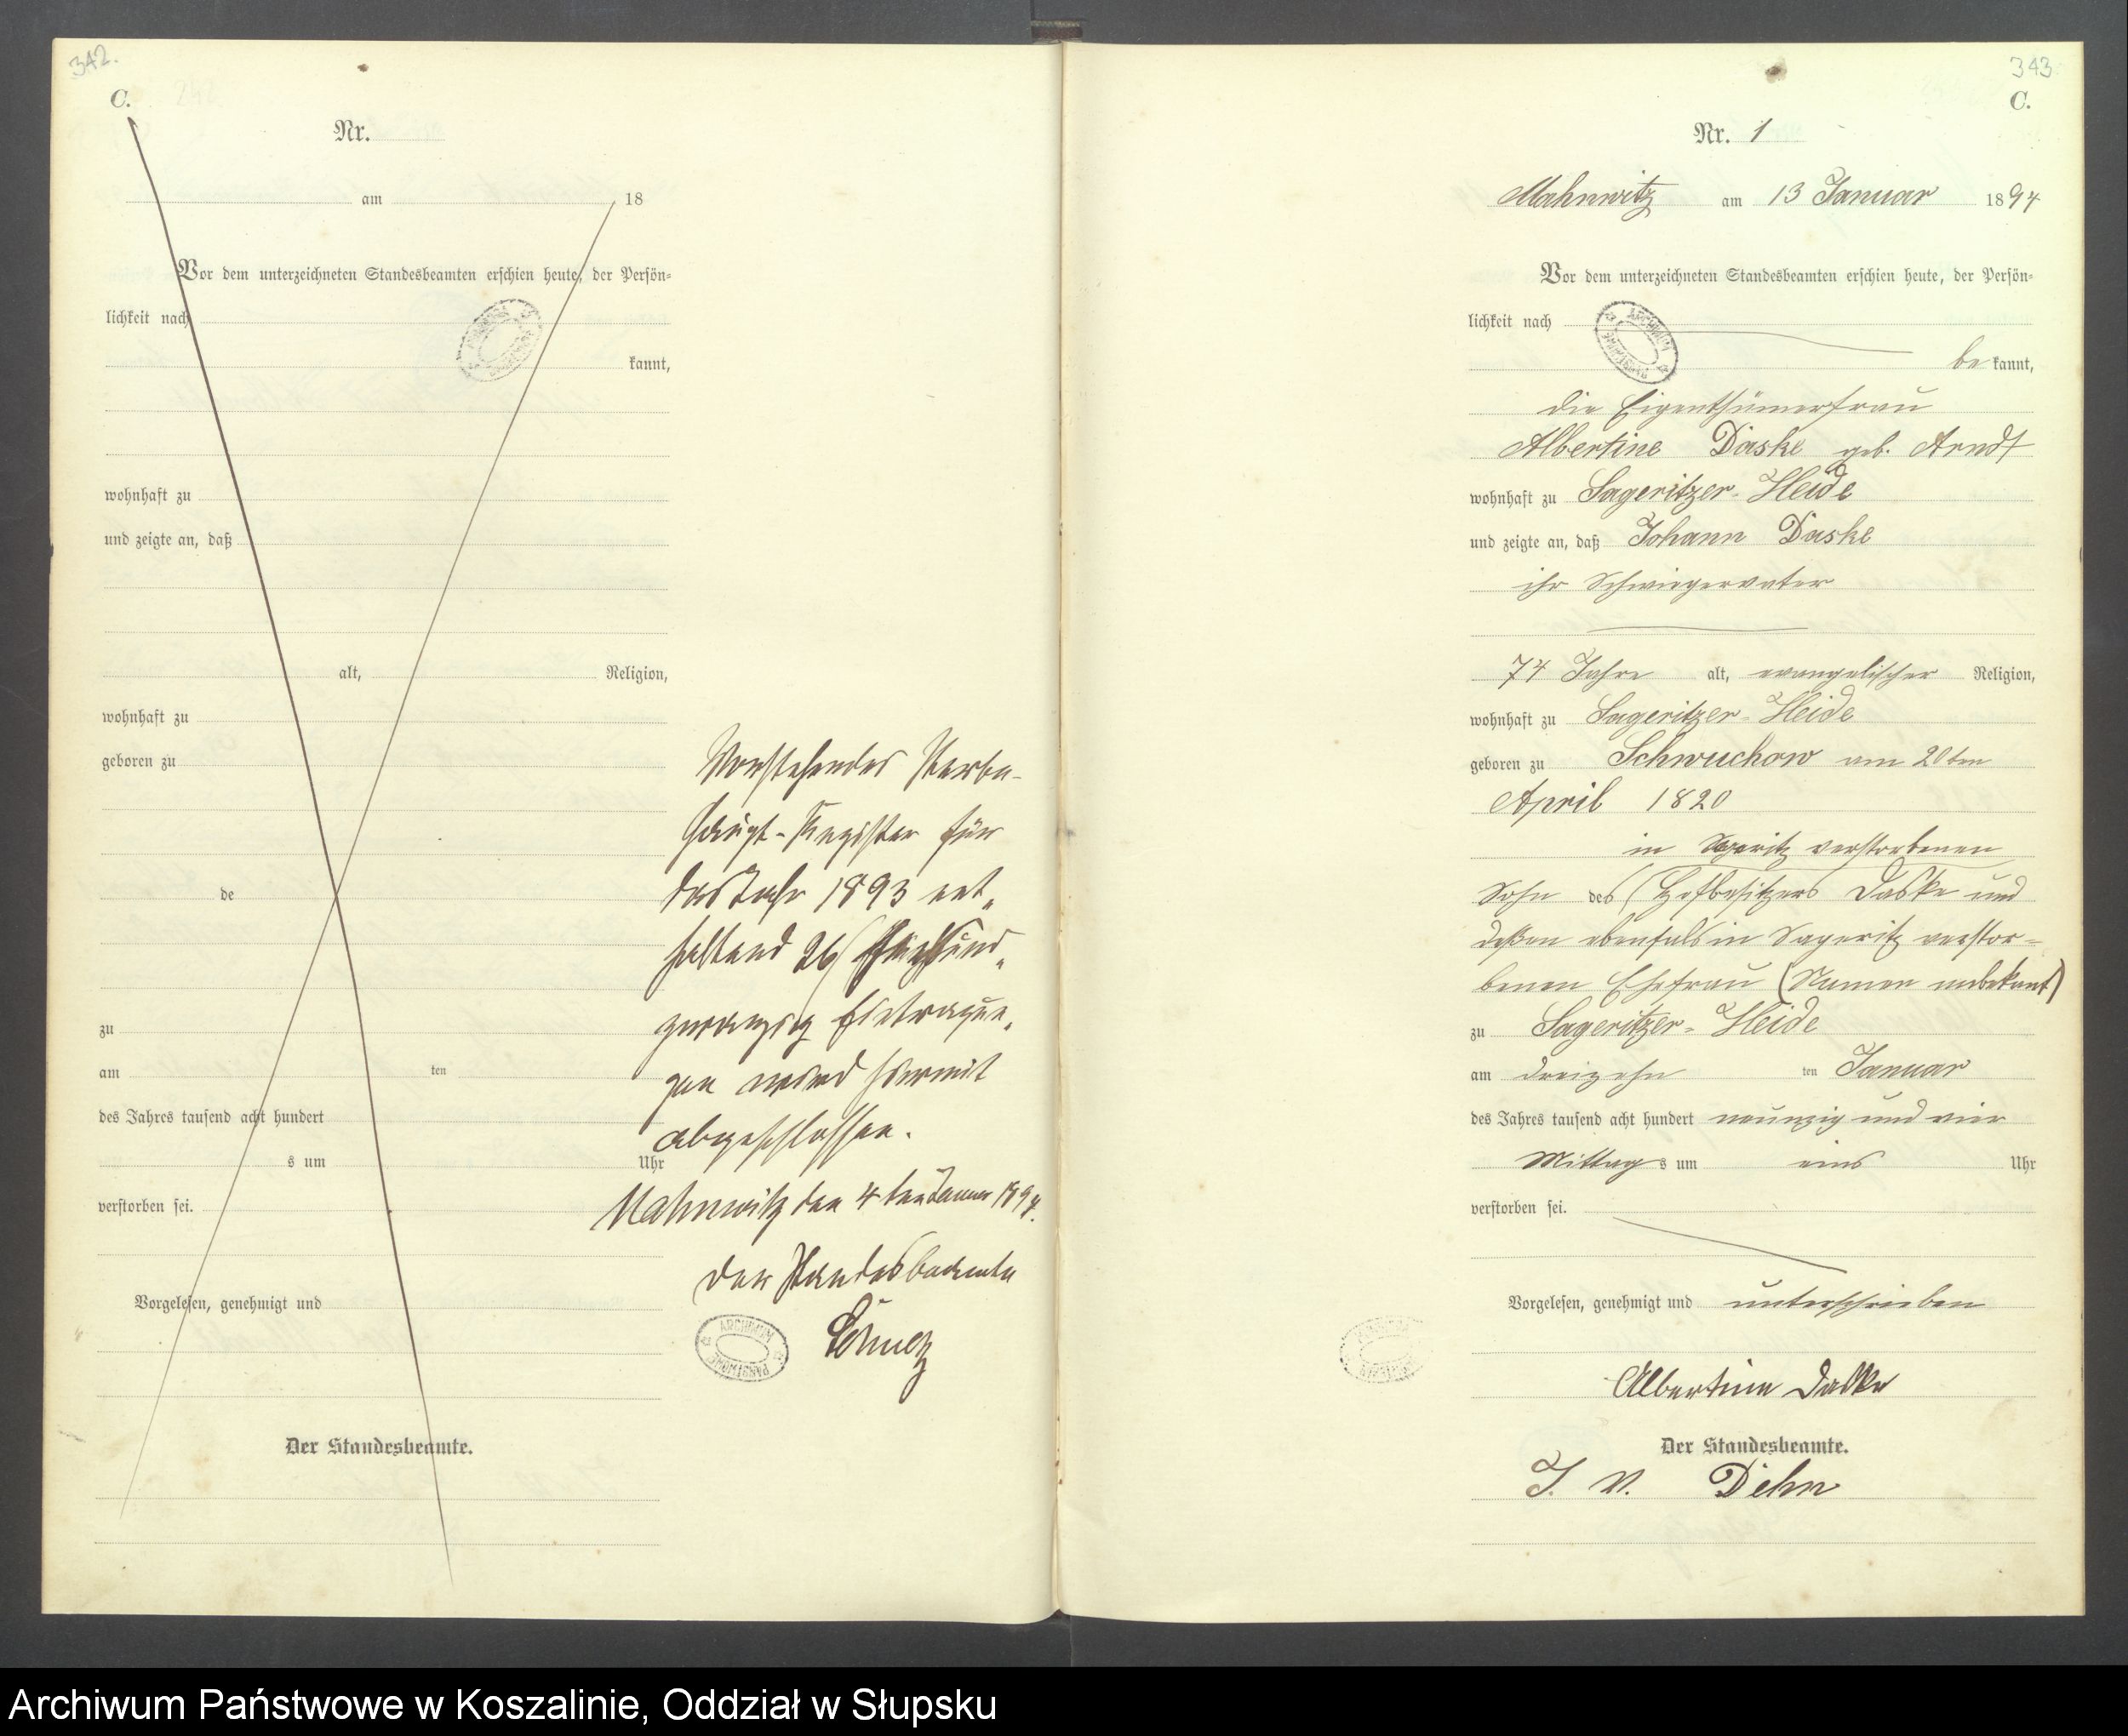 342.
C.
Nr.
am 18
Vor dem unterzeichneten Standesbeamten erschien heute, der Persön-
lichkeit nach
kannt,
wohnhaft zu
und zeigte an, daß
alt, Religion,
wohnhaft zu
geboren zu
de
zu
am ten
des Jahres tausend acht hundert
s um Uhr
verstorben sei.
Vorgelesen, genehmigt und
Der Standesbeamte.
Vorstehendes Sterbe-
Haupt-Register für
das Jahr 1893 ent-
haltend 26
zwanzig Eintragun-
gen wird hiermit
abgeschlossen.
Mahnwitz den 4ten Januar 1894.
Der Standesbeamte
ARCHIWUM PAŃSTWOWE
343
C.
Nr. 1
Mahnwitz am 13 Januar 1894
Vor dem unterzeichneten Standesbeamten erschien heute, der Persön-
lichkeit nach
ARCHIWUM PAŃSTWOWE
be kannt,
die Eigenthümerfrau
Albertine Daske geb. Arndt
wohnhaft zu Sageritzer-Heide
und zeigte an, daß Johann Daske
ihr Schwiegervater
74 Jahre alt, evangelischer Religion,
wohnhaft zu Sageritzer-Heide
geboren zu Schwuchow am 20ten
April 1820
in Sageritz verstorbenen
Sohn des Hofbesitzers Daske und
deßen ebenfals in Sageritz verstor-
benen Ehefrau (Namen unbekant)
zu Sageritzer-Heide
am dreizehn ten Januar
des Jahres tausend acht hundert neunzig und vier
Mittag s um eins Uhr
verstorben sei.
Vorgelesen, genehmigt und unterschrieben
Albertine Daske
Der Standesbeamte.
J. V. Dehn
Archiwum Państwowe w Koszalinie, Oddział w Słupsku